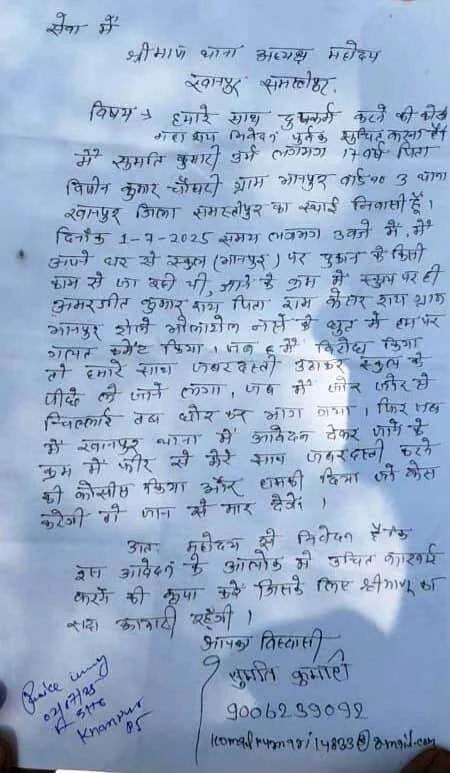 सेवा में
श्रीमान थाना अध्यक्ष महोदय
खानपुर समस्तीपुर
विषय → हमारे साथ दुष्कर्म करने की
महाशय निवेदन पूर्वक सूचित करना है।
मैं सुमति कुमारी उर्म लगभग 17 वर्ष पिता
विपीन कुमार चौधरी ग्राम भानपुर वार्ड न० 3 थाना
खानपुर जिला समस्तीपुर का स्थाई निवासी हूँ।
दिनाँक 1-7-2025 समय लगभग 3 बजे मैं,
अपने घर से स्कुल (भानपुर) पर दुकान के किसी
काम से जा रही थी, जाने के क्रम में स्कुल पर ही
अमरजीत कुमार राय पिता राम राय ग्राम
भानपुर के धुत में हम पर
गलत कमेंट किया। जब हमें विरोध किया
तो हमारे साथ जबरदस्ती उठाकर स्कुल के
पीछे ले जाने लगा, जब मैं जोर जोर से
चिल्लाई तब छोर कर भाग गया। फिर जब
मैं खानपुर थाना में आवेदन देकर जाने के
क्रम में फीर से मेरे साथ जबरदस्ती करने
की कोसीस किया और धमकी दिया जो केस
करेगी तो जान से मार देंगे।
अतः महोदय से निवेदन है कि
इस आवेदन के आलोक में उचित कारवाई
करने की कृपा करें जिसके लिए श्रीमान का
सदा आभारी रहूँगी।
आपका विस्वासी
सुमति कुमारी
9006239092
komalkumari14833@gmail.com
02/07/25
Khanpur
PS